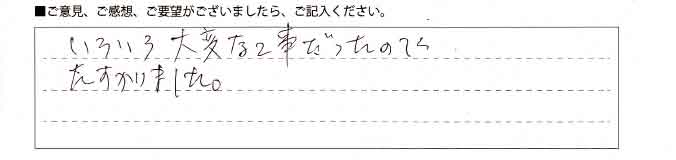 ■ご意見、ご感想、ご要望がございましたら、ご記入ください。
いろいろ大変な事だったので
たすかりました。